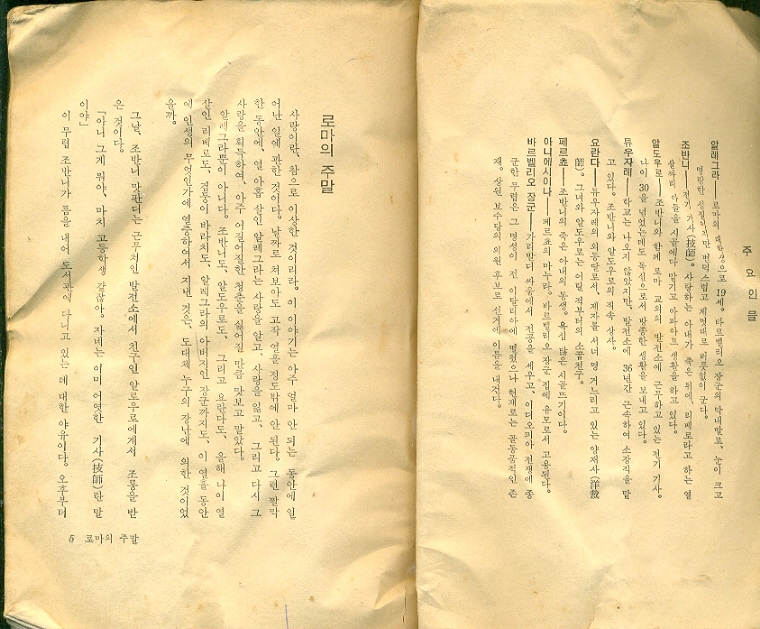 주요인물
알레그라──로마의 대학생으로 19세. 바르벨리오 장군의 막내딸로, 눈이 크고
명랑한 성질이지만 변덕스럽고 제멋대로 버릇없이 군다.
조반니──전기 기사(技師). 사랑하는 아내가 죽은 뒤에, 리페로라고 하는 열
살짜리 아들을 시골에다 맡기고 아파아트 생활을 하고 있다.
알도우로──조반니와 함께 로마 교외의 발전소에 근무하고 있는 전기 기사.
나이 30을 넘었는데도 독신으로서 방종한 생활을 보내고 있다.
듀우자레──학교는 나오지 않았지만, 발전소에 36년간 근속하여 소장직을 맡
고 있다. 조반니와 알도우로의 직속 상사.
요란다──듀우자레의 외동딸로서, 제자를 서너 명 거느리고 있는 양재사(洋裁
師). 그녀와 알도우로는 어릴 적부터의 소꿉친구.
페르쵸──조반니의 죽은 아내의 동생. 욕심 많은 시골뜨기이다.
아니에시이나──페르쵸의 마누라. 바르벨리오 장군 집에 유모로서 고용된다.
바르벨리오 장군──가리발디 싸움에서 전공을 세우고, 이디오피아 전쟁에 종
군한 무렵은 그 명성이 전 이탈리아에 떨쳤으나 현재로는 골동품적인 존
재. 상원 보수당의 의원 후보로 선거에 이름을 내건다.
로마의 주말
사랑이란, 참으로 이상한 것이리라. 이 이야기는 아주 얼마 안 되는 동안에 일
어난 일에 관한 것이다. 날짜로 쳐보아도 고작 열흘 정도밖에 안 된다. 그런 짤막
한 동안에, 열 아홉 살인 알레그라는 사랑을 알고, 사랑을 잃고, 그리고 다시 그
사랑을 획득하여, 아주 어질어질한 청춘을 싫어질 만큼 맛보고 말았다.
알레그라뿐이 아니다. 조반니도, 알도우로도, 그리고 요란다도, 올해 나이 열
살인 리페로도, 검둥이 바라치도, 알레그라의 아버지인 장군까지도, 이 열흘 동안
에 인생의 무엇인가에 열중하여서 지낸 것은, 도대체 누구의 장난에 의한 것이었
을까.
그날, 조반니 맛판디는 근무처인 발전소에서 친구인 알로우로에게서 조롱을 받
은 것이다.
「아니 그게 뭐야, 마치 고등학생 같잖아. 자네는 이미 어엿한 기사(技師)란 말
이야」
이 무렵 조반니가 틈을 내어 도서관에 다니고 있는 데 대한 야유이다. 오후부터
5 로마의 주말